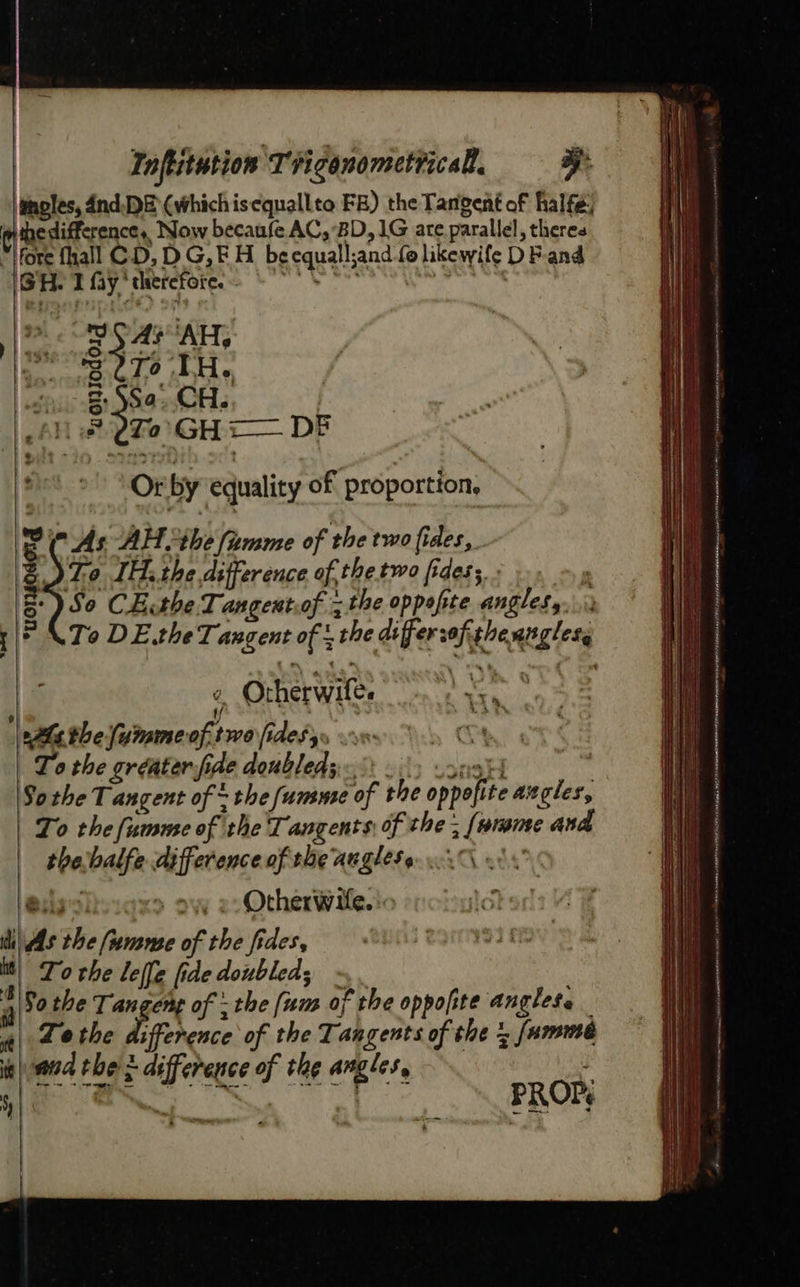 Inſtitution Trigonometricall. 5
angles, and DE (which is equall to FE) the Tangent of halfe
the difference. Now becauſe AC, BD, IG are parallel, there-
fore ſhall CD, DG, FH be equall; and ſo likewiſe DF and
GH. I ſay therefore.
As AH,
To IH.
So CH.
To GH = DF
Or by equality of proportion.
As AH. the ſumme of the two ſides,
To IH. the difference of the two ſides;
So CE. the Tangent of ½ the oppoſite angles,
To DE. the Tangent of ½ the differ: of the angles.
Otherwiſe.
As the ſumme of two ſides,
To the greater ſide doubled;
So the Tangent of ½ the ſumme of the oppoſite angles,
To the ſumme of the Tangents of the ½ ſumme and
the halfe difference of the angles.
Otherwiſe.
As the ſumme of the ſides,
To the leſſe ſide doubled;
So the Tangent of ½ the ſum of the oppoſite angles.
To the difference of the Tangents of the ½ ſumme
and the ½ difference of the angles,
PROP.